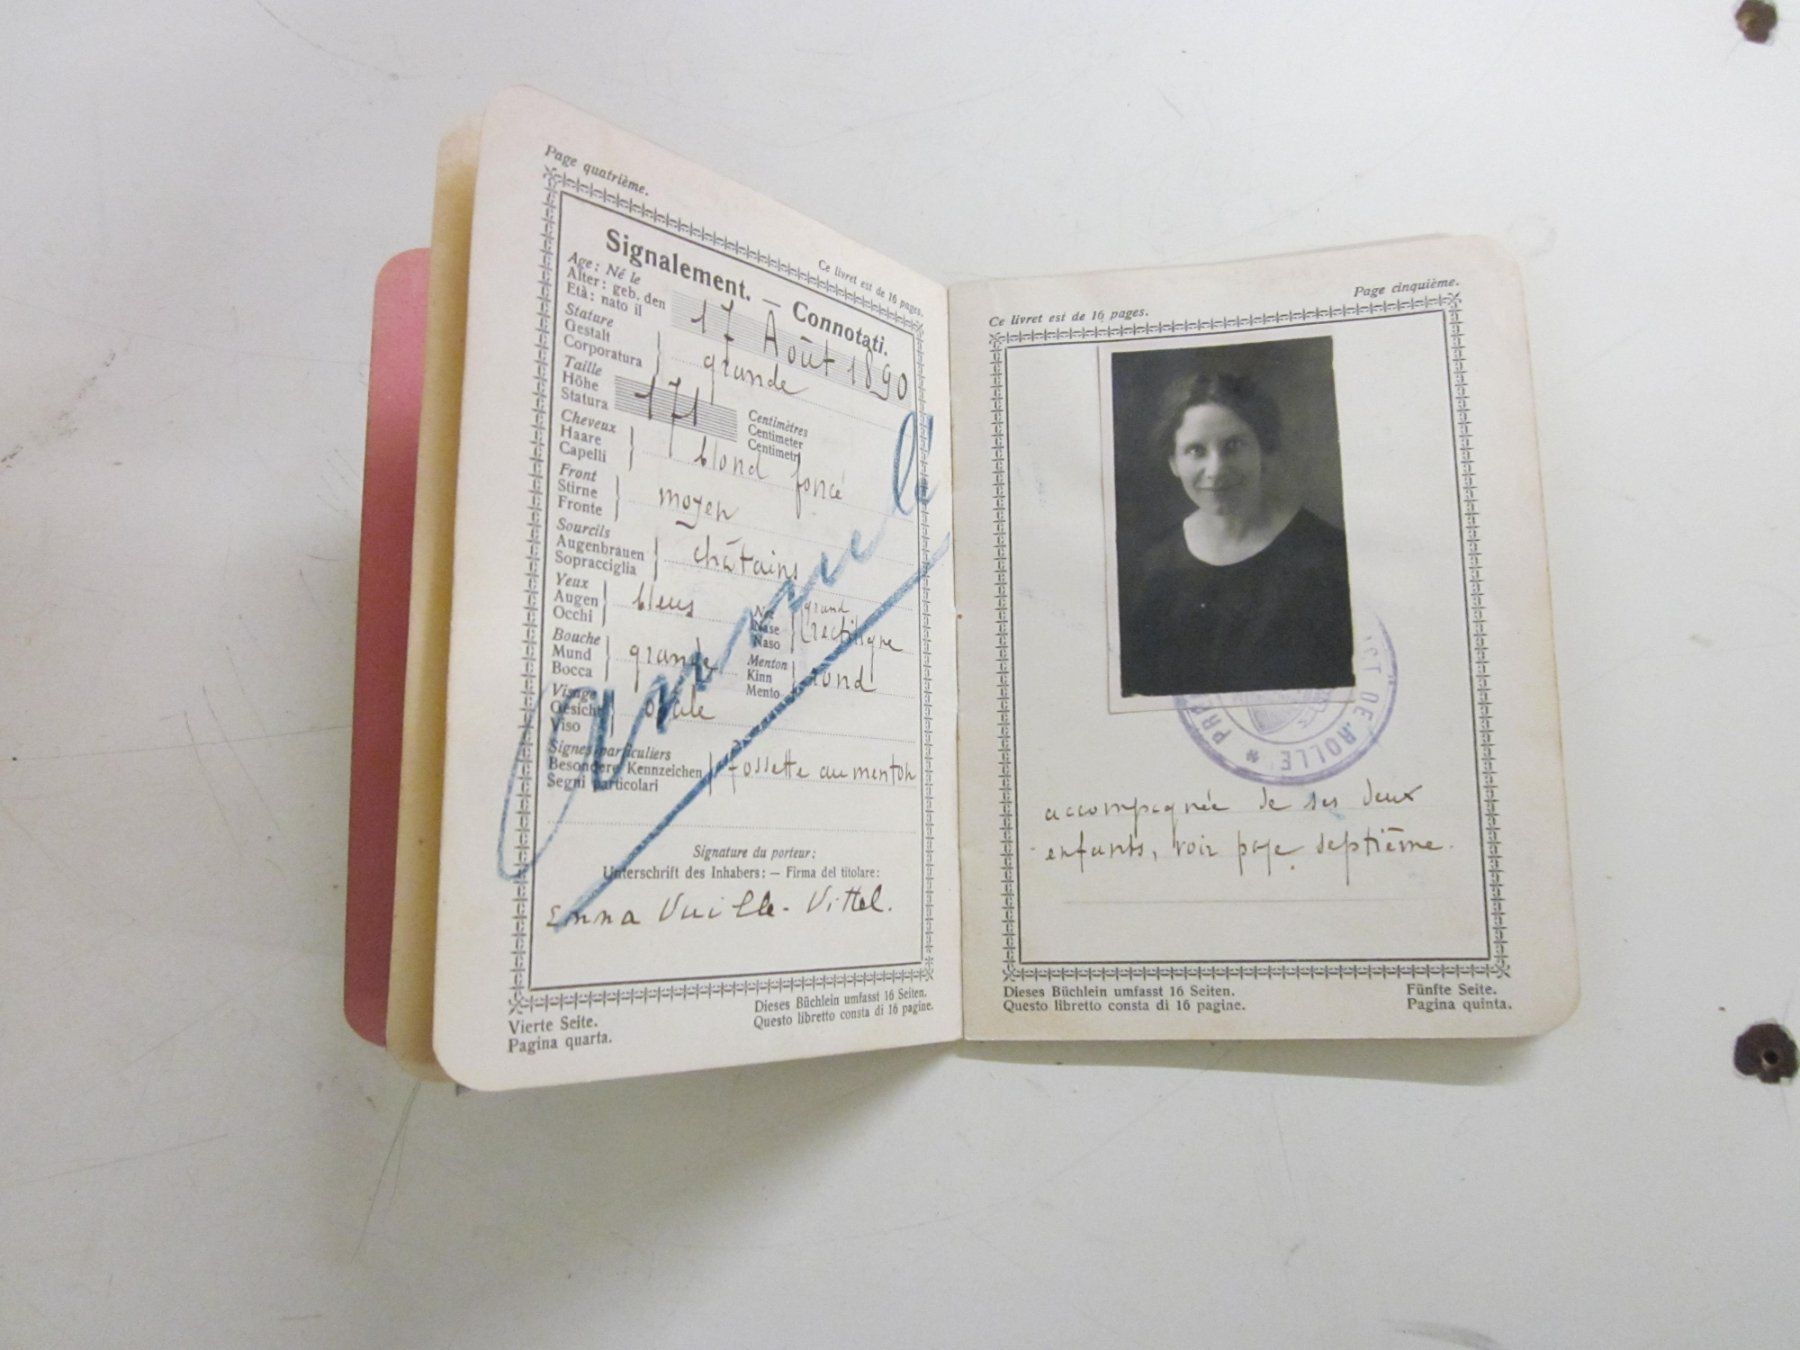 Page quatrième.
Ce livret est de 16 pages.
Signalement. — Connotati.
Age: Né le
Alter: geb. den
Età: nato il
17 Août 1890
Stature
Gestalt
Corporatura
grande
Taille
Höhe
Statura
171
Centimètres
Centimeter
Centimetri
Cheveux
Haare
Capelli
blond foncé
Front
Stirne
Fronte
moyen
Sourcils
Augenbrauen
Sopracciglia
châtains
Yeux
Augen
Occhi
bleus
Nez
Nase
Naso
grand
rectiligne
Bouche
Mund
Bocca
grande
Menton
Kinn
Mento
rond
Visage
Gesicht
Viso
ovale
Signes particuliers
Besondere Kennzeichen
Segni particolari
fossette au menton
Annulé
Signature du porteur:
Unterschrift des Inhabers: — Firma del titolare:
Emma Vuille-Vittel.
Vierte Seite.
Pagina quarta.
Dieses Büchlein umfasst 16 Seiten.
Questo libretto consta di 16 pagine.
Page cinquième.
Ce livret est de 16 pages.
DE ROLLE * PRÉ
accompagnée de ses deux
enfants, voir page septième.
Dieses Büchlein umfasst 16 Seiten.
Questo libretto consta di 16 pagine.
Fünfte Seite.
Pagina quinta.